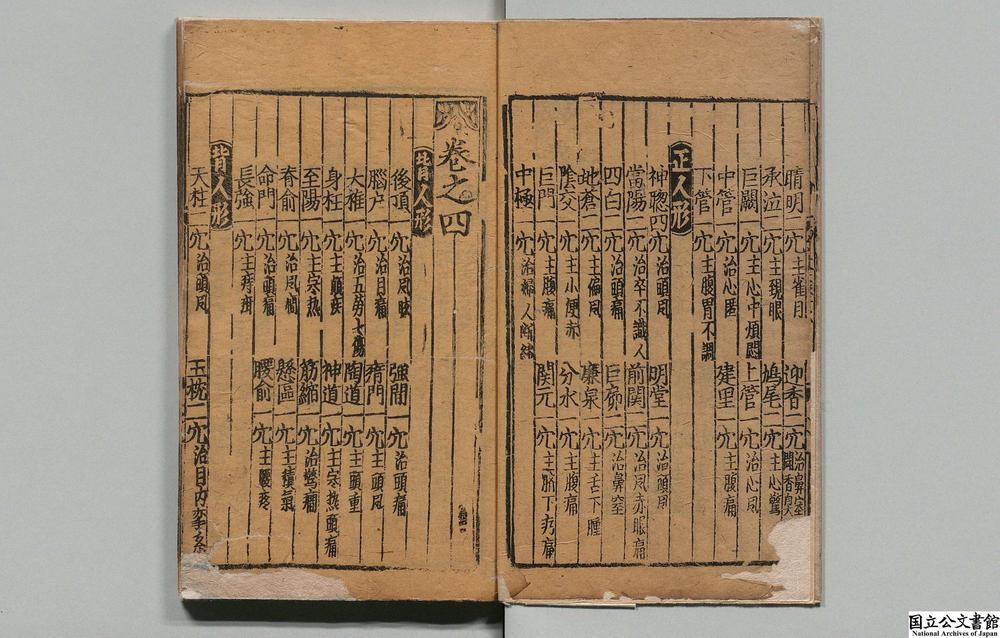 睛明一穴主雀目 迎香二穴治鼻窒聞香臭
承泣二穴主覌眼 鳩尾一穴主心驚
巨闕一穴主心中煩悶 上管一穴治心风
中管一穴治心匿 建里一穴主腹痛
下管一穴主腹胃不調
正人形
神聦四穴治頭风 明堂一穴治頭风
當陽二穴治卒不識人 前関一穴治风赤眼痛
四白二穴治頭痛 巨窌二穴治鼻窒
地蒼二穴主偏风 廉泉一穴主舌下腫
陰交一穴主小便赤 分水一穴主腹痛
巨門一穴主腹痛 関元一穴主脐下㽲痛
中極一穴治婦人断緒
卷之四
背人形
後頂一穴治风眩 強間一穴治頭痛
腦户一穴治目痛 瘄門一穴主頭风
大椎一穴治五劳七傷 陶道一穴主頭重
身柱一穴主癲疾 神道一穴主寒热頭痛
至陽一穴主寒热 筋縮一穴治驚癇
脊俞一穴治风癇 懸區一穴主積氣
命門一穴治頭痛 腰俞一穴主腰疼
長強一穴主痔
背人形
天柱二穴治頭风 玉枕二穴治目内
国立公文書館
National Archives of Japan